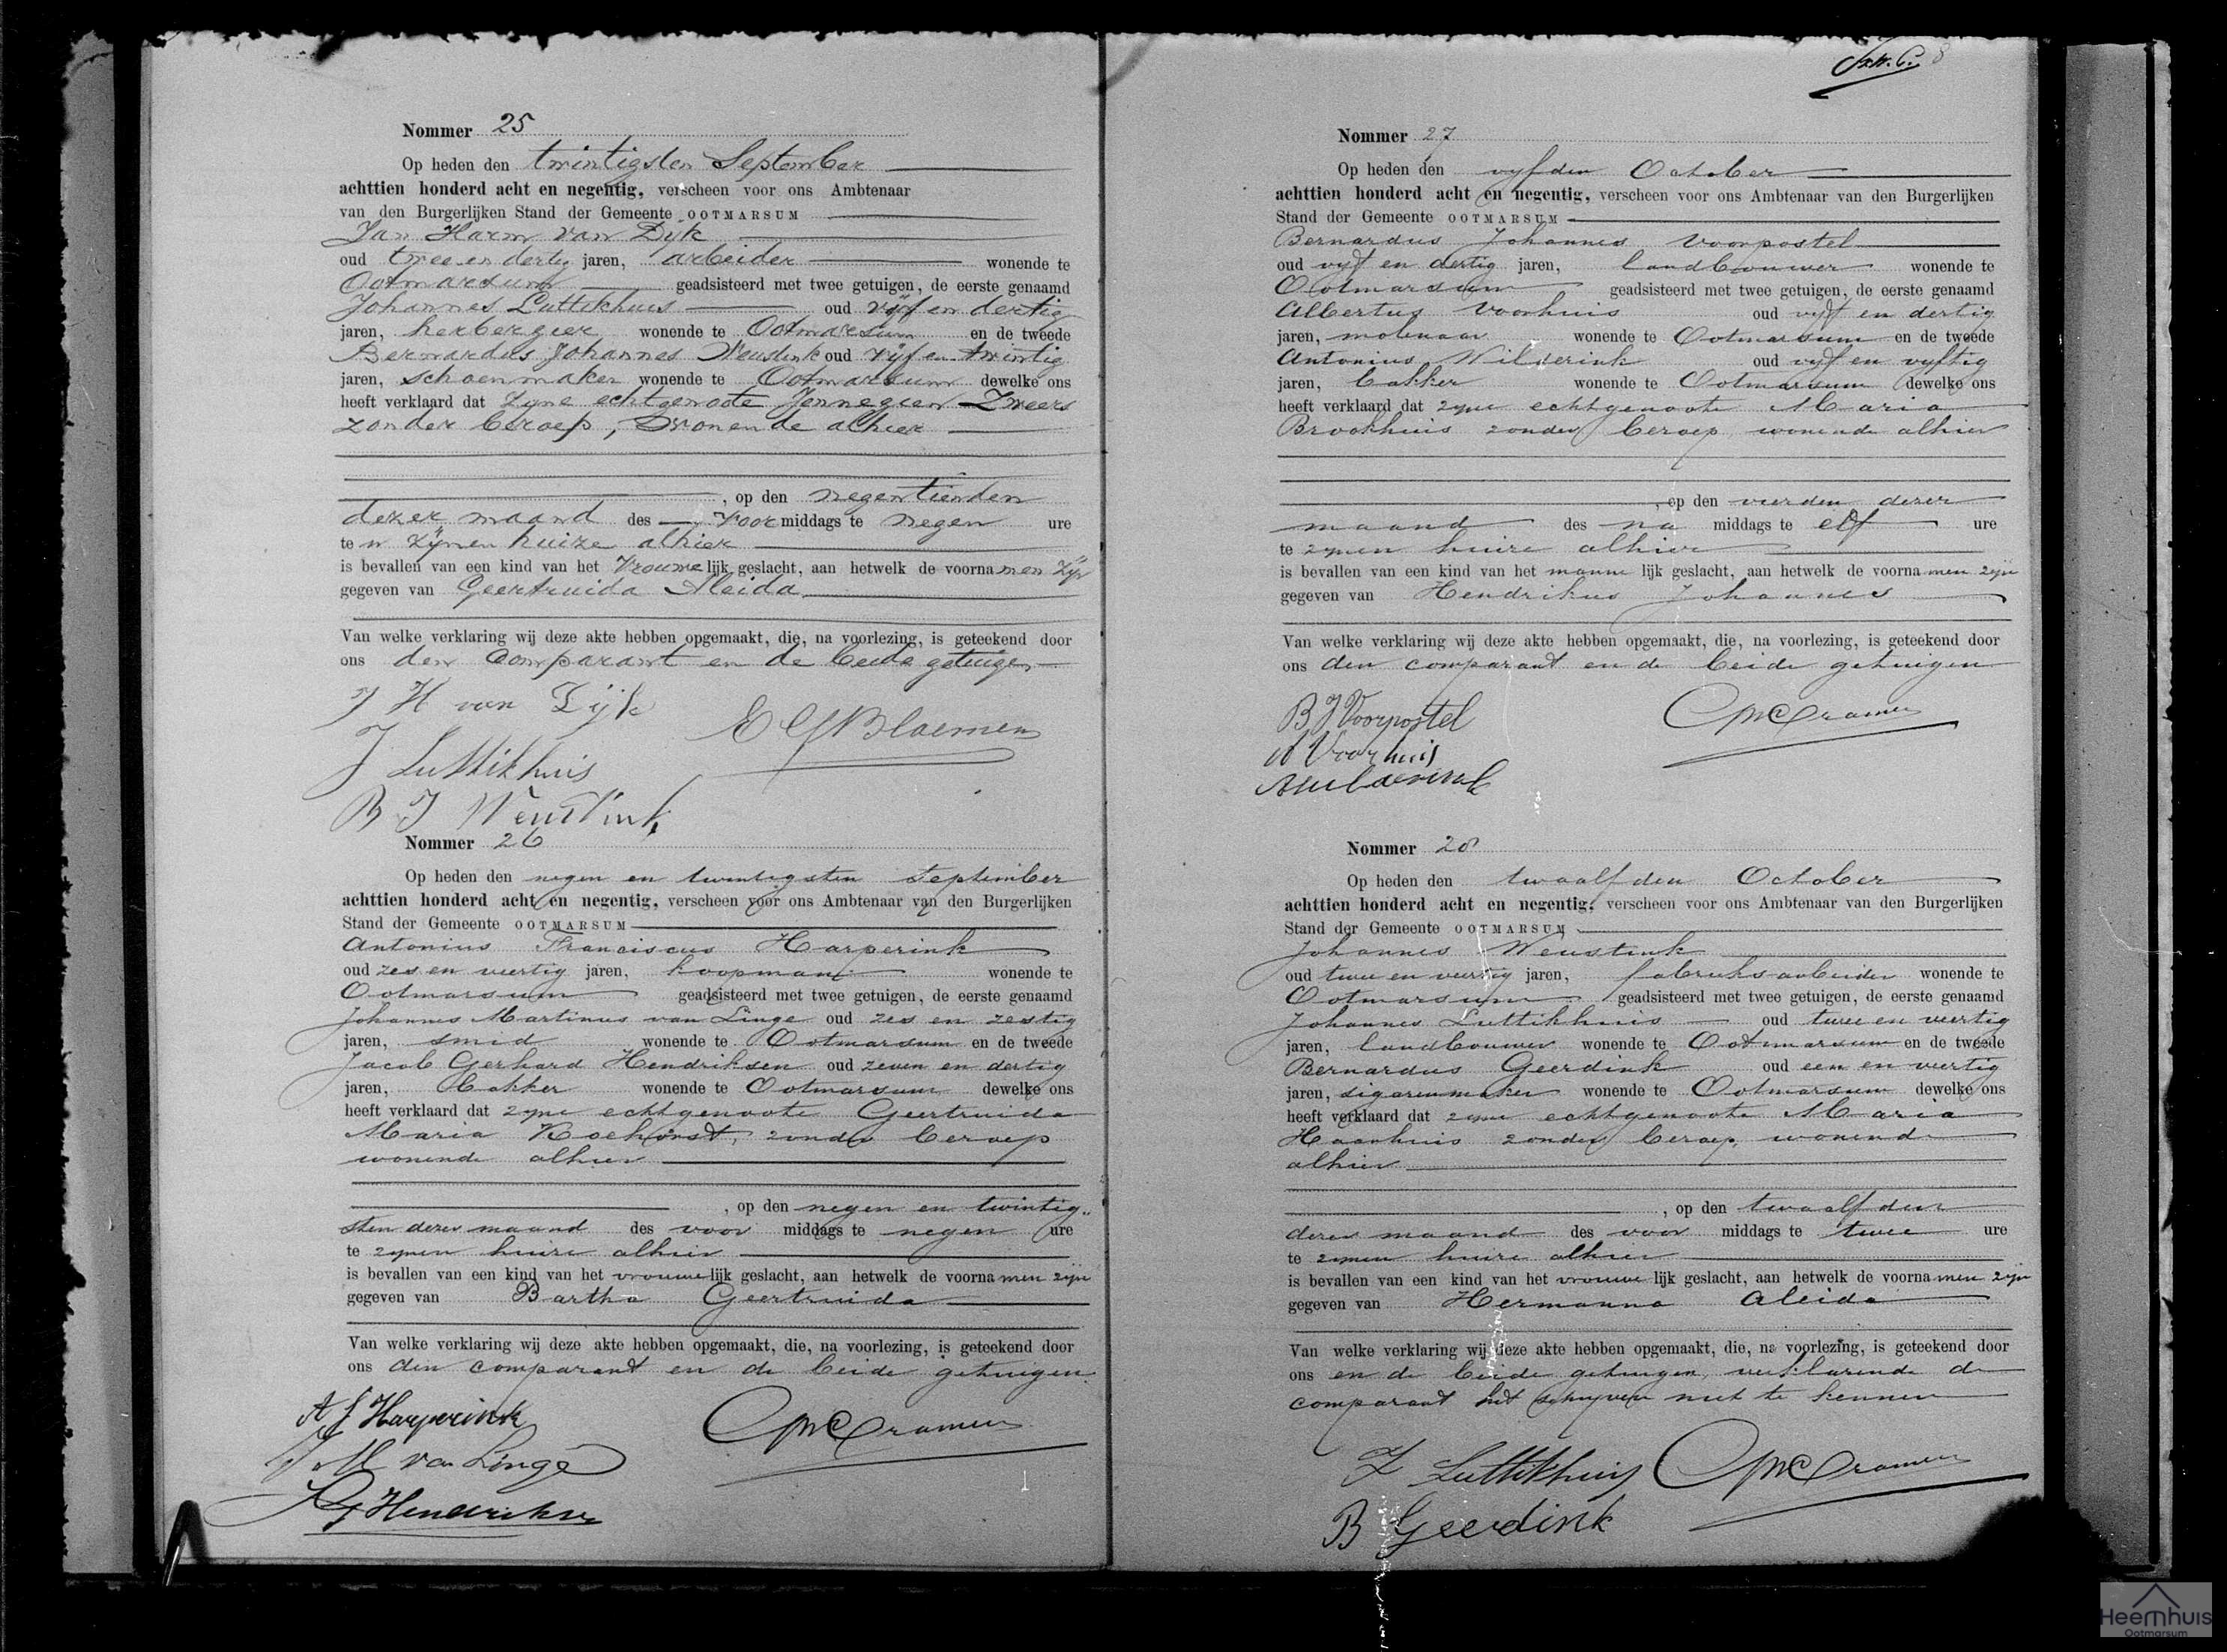 Nommer 25
Op heden den twintigsten September
achttien honderd acht en negentig, verscheen voor ons Ambtenaar
van den Burgerlijken Stand der Gemeente OOTMARSUM
Jan Harm van Dijk
oud twee en dertig jaren, arbeider wonende te
Ootmarsum geadsisteerd met twee getuigen, de eerste genaamd
Johannes Luttikhuis oud vijf en dertig
jaren, herbergier wonende te Ootmarsum en de tweede
Bernardus Johannes Weustink oud vijf en twintig
jaren, schoenmaker wonende te Ootmarsum dewelke ons
heeft verklaard dat zijne echtgenoote Jennegien Zweers
zonder beroep, wonende alhier
, op den negentienden
dezer maand des voor middags te negen ure
te in zijnen huize alhier
is bevallen van een kind van het vrouwe lijk geslacht, aan hetwelk de voorna men zijn
gegeven van Geertruida Aleida
Van welke verklaring wij deze akte hebben opgemaakt, die, na voorlezing, is geteekend door
ons den comparant en de beide getuigen
J H van Dijk
E G Bloemen
J Luttikhuis
B J Weustink
Nommer 26
Op heden den negen en twintigsten September
achttien honderd acht en negentig, verscheen voor ons Ambtenaar van den Burgerlijken
Stand der Gemeente OOTMARSUM
Antonius Franciscus Harperink
oud zes en veertig jaren, koopman wonende te
Ootmarsum geadsisteerd met twee getuigen, de eerste genaamd
Johannes Martinus van Linge oud zes en zestig
jaren, smid wonende te Ootmarsum en de tweede
Jacob Gerhard Hendriksen oud zeven en dertig
jaren, bakker wonende te Ootmarsum dewelke ons
heeft verklaard dat zijne echtgenoote Geertruida
Maria Kochorst, zonder beroep
wonende alhier
, op den negen en twintig„
sten dezer maand des voor middags te negen ure
te zijnen huize alhier
is bevallen van een kind van het vrouwe lijk geslacht, aan hetwelk de voorna men zijn
gegeven van Bartha Geertruida
Van welke verklaring wij deze akte hebben opgemaakt, die, na voorlezing, is geteekend door
ons den comparant en de beide getuigen.
A F Harperink
Cramer
J M van Linge
J G Hendriksen
8
Nommer 27
Op heden den vijfden October
achttien honderd acht en negentig, verscheen voor ons Ambtenaar van den Burgerlijken
Stand der Gemeente OOTMARSUM
Bernardus Johannes Voorpostel
oud vijf en dertig jaren, landbouwer wonende te
Ootmarsum geadsisteerd met twee getuigen, de eerste genaamd
Albertus Voorhuis oud vijf en dertig
jaren, molenaar wonende te Ootmarsum en de tweede
Antonius Wilderink oud vijf en vijftig
jaren, bakker wonende te Ootmarsum dewelke ons
heeft verklaard dat zijne echtgenoote Maria
Brookhuis zonder beroep wonende alhier
, op den vierden dezer
maand des na middags te elf ure
te zijnen huize alhier
is bevallen van een kind van het manne lijk geslacht, aan hetwelk de voorna men zijn
gegeven van Hendrikus Johannes
Van welke verklaring wij deze akte hebben opgemaakt, die, na voorlezing, is geteekend door
ons den comparant en de beide getuigen
B J Voorpostel
Cramer
A Voorhuis
A Wilderink
Nommer 28
Op heden den twaalfden October
achttien honderd acht en negentig, verscheen voor ons Ambtenaar van den Burgerlijken
Stand der Gemeente OOTMARSUM
Johannes Weustink
oud twee en veertig jaren, fabrieksarbeider wonende te
Ootmarsum geadsisteerd met twee getuigen, de eerste genaamd
Johannes Luttikhuis oud twee en veertig
jaren, landbouwer wonende te Ootmarsum en de tweede
Bernardus Geerdink oud een en veertig
jaren, sigarenmaker wonende te Ootmarsum dewelke ons
heeft verklaard dat zijne echtgenoote Maria
Haarhuis zonder beroep, wonende
alhier
, op den twaalfden
dezer maand des voor middags te twee ure
te zijnen huize alhier
is bevallen van een kind van het vrouwe lijk geslacht, aan hetwelk de voorna men zijn
gegeven van Hermanna Aleida
Van welke verklaring wij deze akte hebben opgemaakt, die, na voorlezing, is geteekend door
ons en de beide getuigen, verklarende de
comparant het schrijven niet te kennen
J Luttikhuis Cramer
B Geerdink
Heemhuis
Ootmarsum